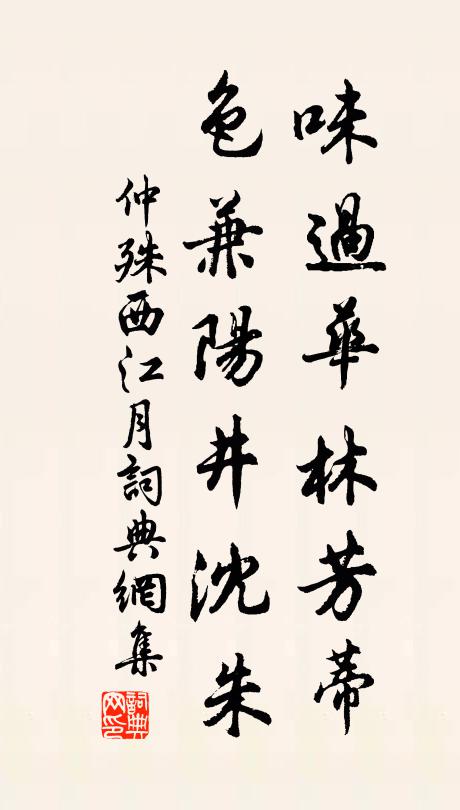 味過華林芳蒂
色兼陽井沈朱
仲殊西江月詞典網集
詞典网印